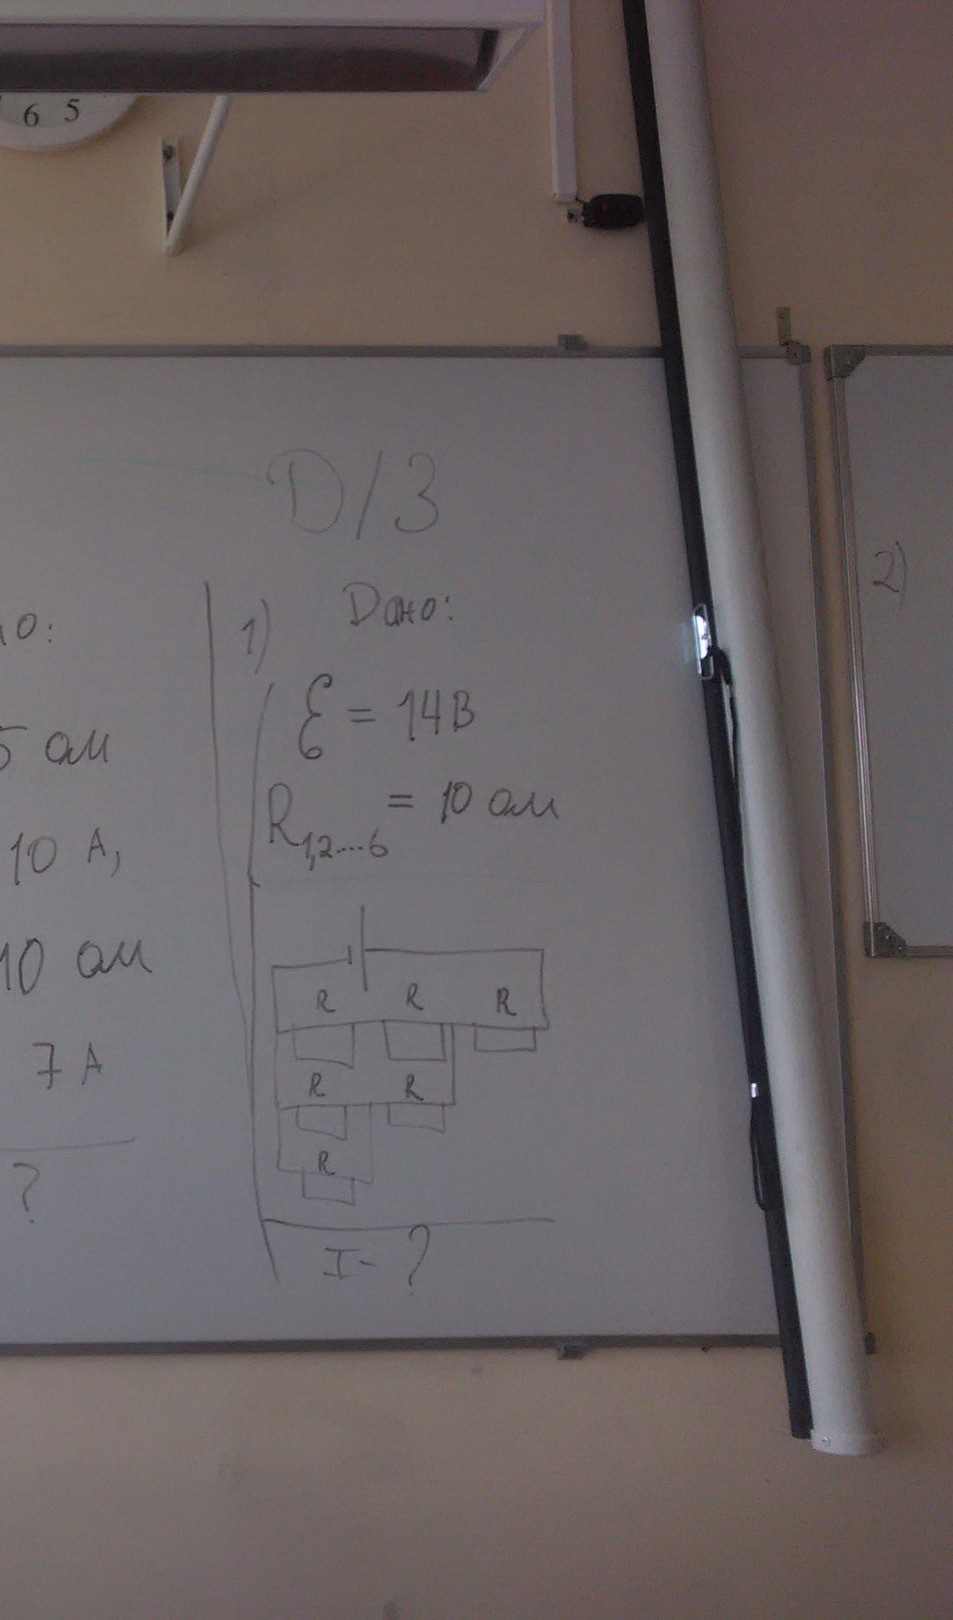 6 5
D/З
но:
5 ом
10 А,
10 ом
7 А
?
1) Дано:
ℰ = 14В
R1,2...6 = 10 ом
R R R
R R
R
I - ?
2)